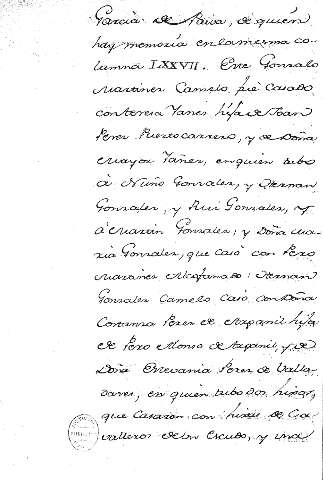 Garcia de Paiva, de quién
hay memoria en la mesma co-
lumna LXXVII. Este Gonzalo
Martinez Camelo, fue Casado
con teresa Yanes hija de Joan
Perez Puertocarrero, y de Doña
Mayor Yañez, en quien tubo
à Nuño Gonzalez, y Hernan
Gonzalez, y Rui Gonzalez, y
à Martin Gonzalez; y Doña Ma-
ria Gonzalez, que casó con Pero
Martinez Alcoforado: Hernan
Gonzalez Camelo Casó con Doña
Constanza Perez de Arganil hija
de Pero Alonso de Arganil, y de
Doña Estevania Perez de Valla-
dares, en quien tubo dos hijas,
que Casaron con hijos de Ca-
valleros de un Escudo, y una